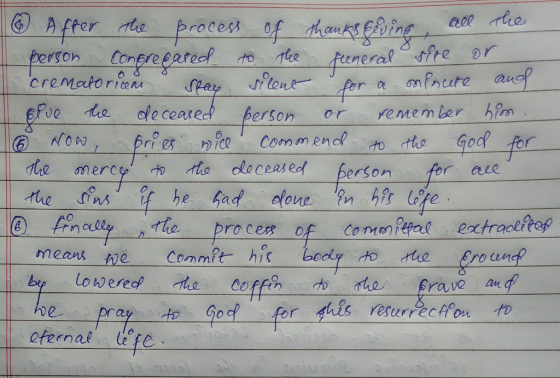 ④ After the process of thanksgiving, all the
person congregated to the funeral site or
crematorium stay silent for a minute and
give the deceased person or remember him.
⑤ Now, pries will commend to the God for
the mercy to the deceased person for all
the sins if he had done in his life.
⑥ finally, the process of committal extradited
means we commit his body to the ground
by lowered the coffin to the grave and
we pray to God for his resurrection to
eternal life.